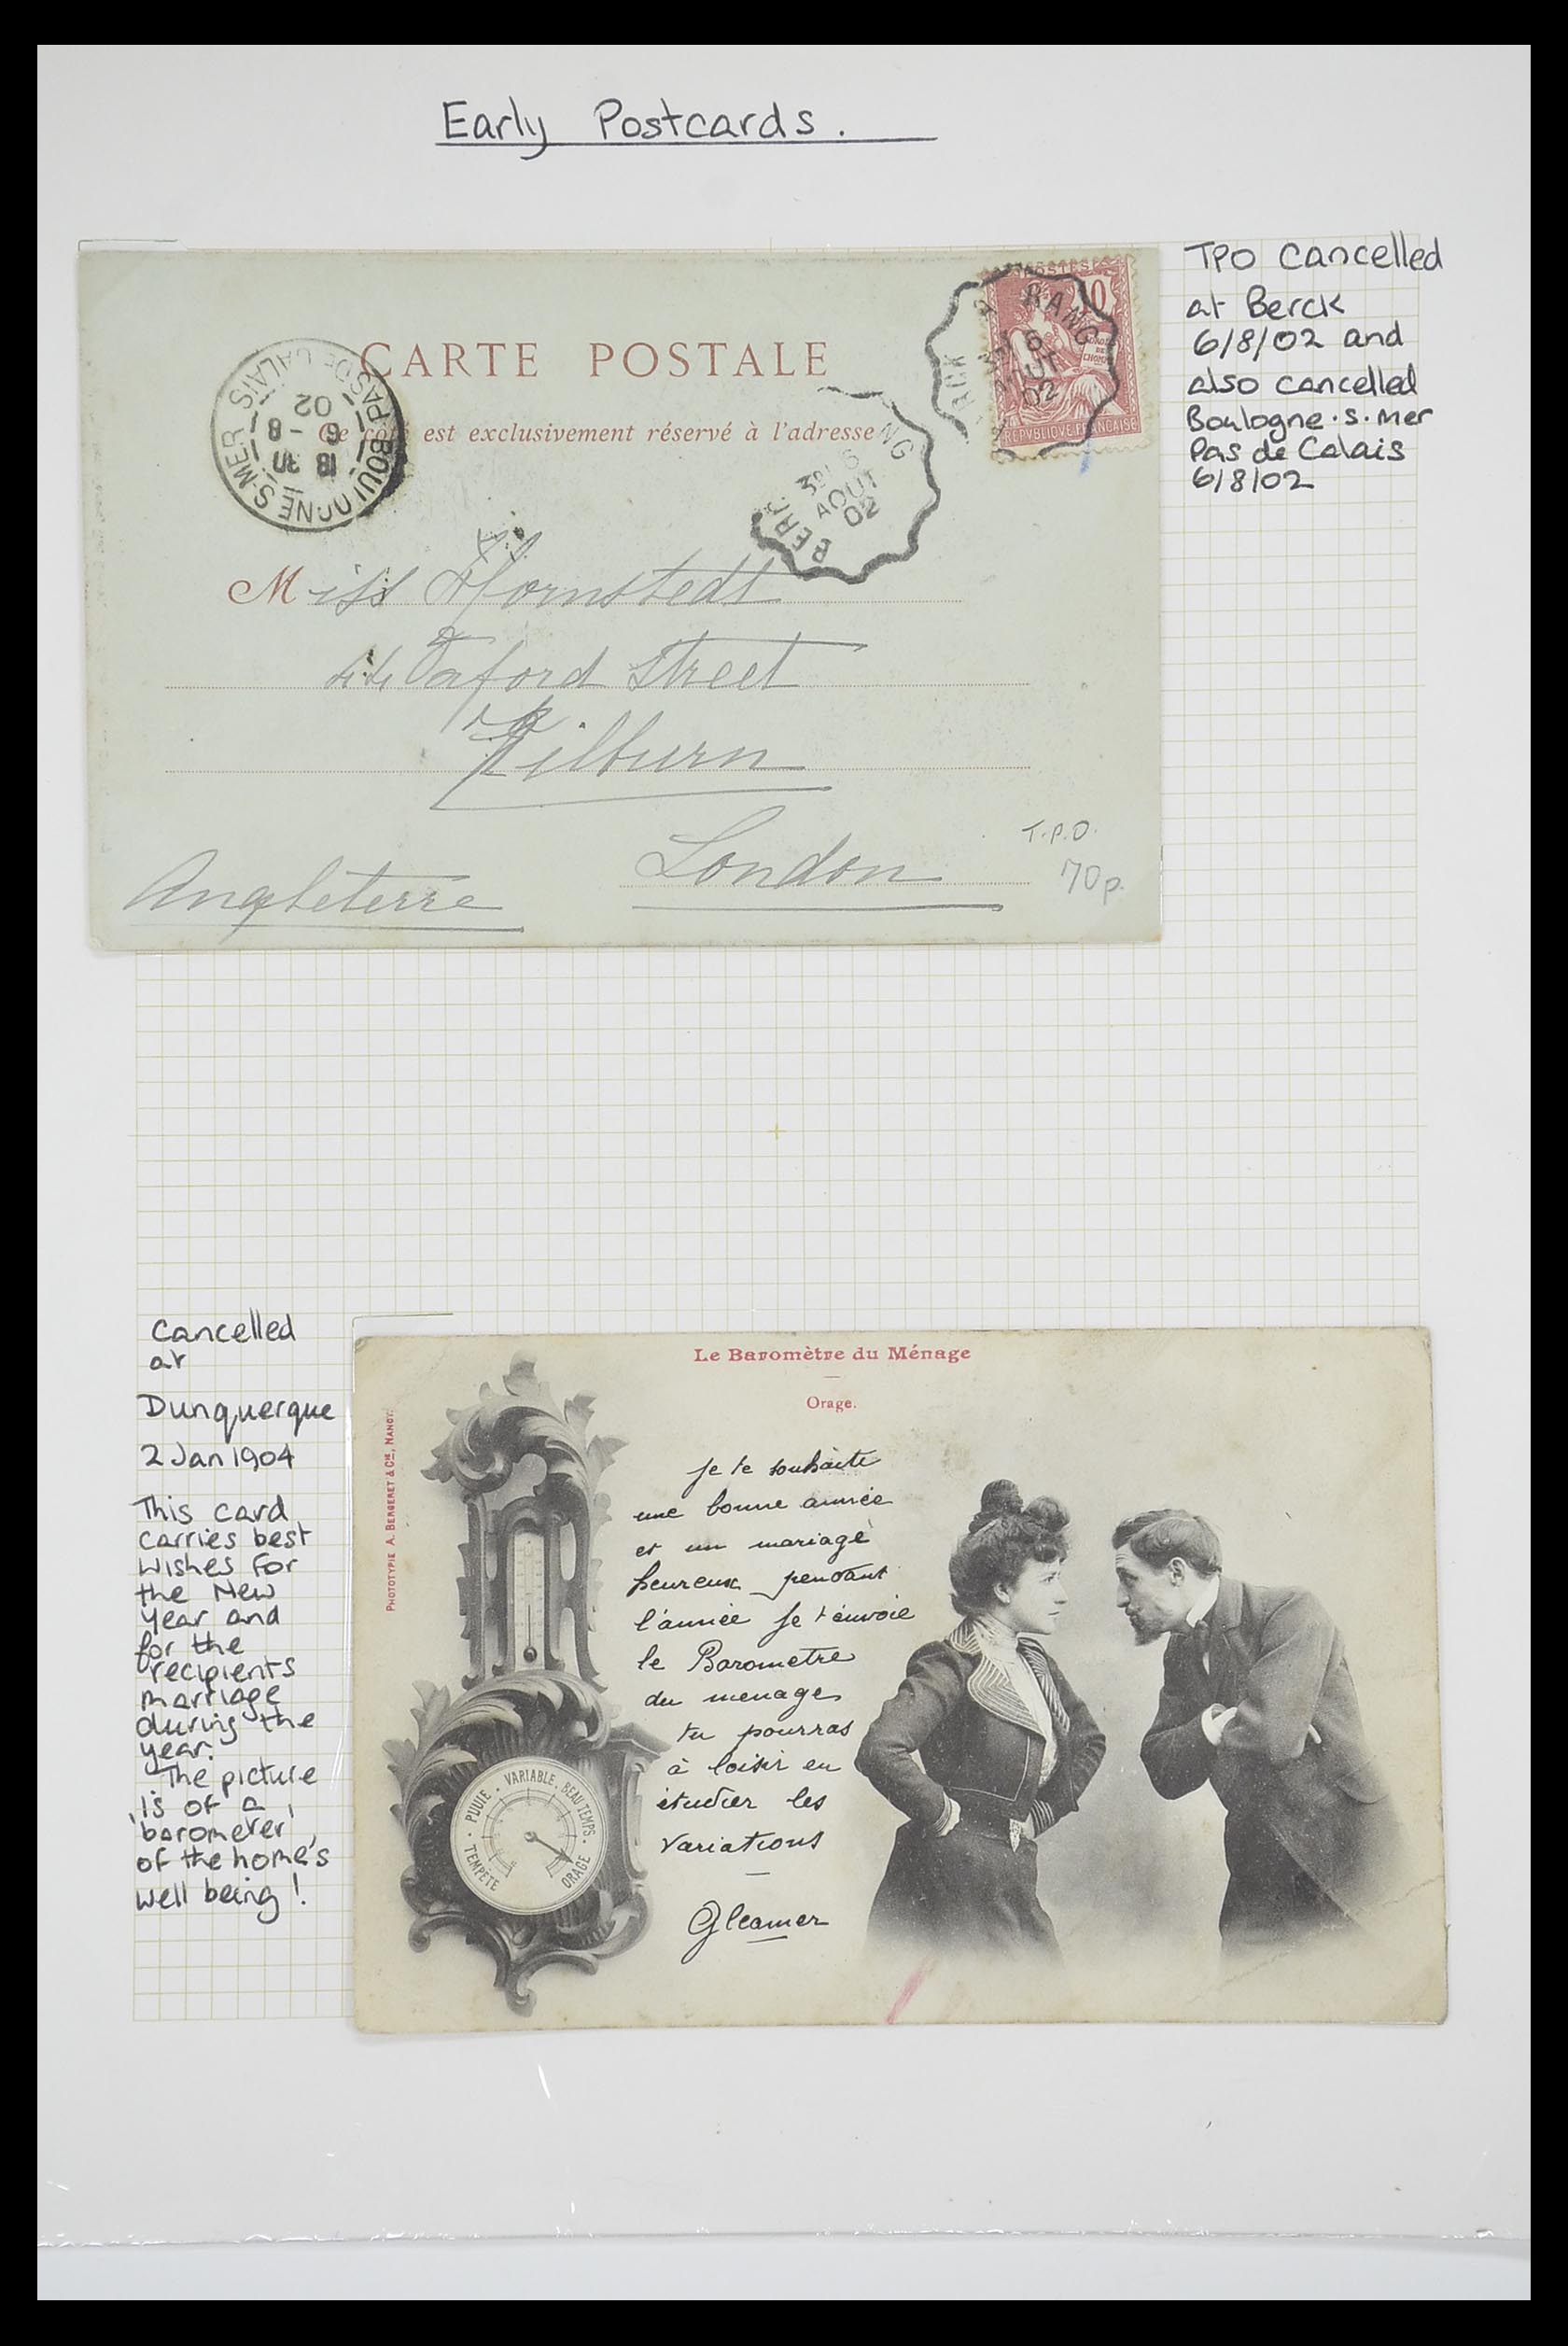 Early Postcards.
TPO Cancelled
at Berck
6/8/02 and
also cancelled
Boulogne.s.mer
Pas de Calais
6/8/02
CARTE POSTALE
Ce coté est exclusivement réservé à l'adresse
POSTES
10
DROITS
DE
L'HOMME
REPVBLIQVE FRANÇAISE
A RANG
3º 6
AOUT
02
BERC
NG
3º 6
AOUT
02
BOULOGNE S-MER
PAS DE CALAIS
18 30
6 - 8
02
Miss Hornstedt
44 Oaford Street
Kilburn
London
Angleterre
T.P.O.
70p.
Cancelled
at
Dunquerque
2 Jan 1904
This card
carries best
wishes for
the New
year and
for the
recipients
marriage
during the
year.
The picture
is of a
'barometer'
of the home's
well being!
Le Baromètre du Ménage
Orage.
PHOTOTYPIE A. BERGERET & Cie, NANCY.
Je te souhaite
une bonne année
et un mariage
heureux pendant
l'année Je t'envoie
le Barometre
du menage
tu pourras
à loisir en
étudier les
variations
Gleamer
TEMPÊTE · PLUIE · VARIABLE · BEAU TEMPS · ORAGE